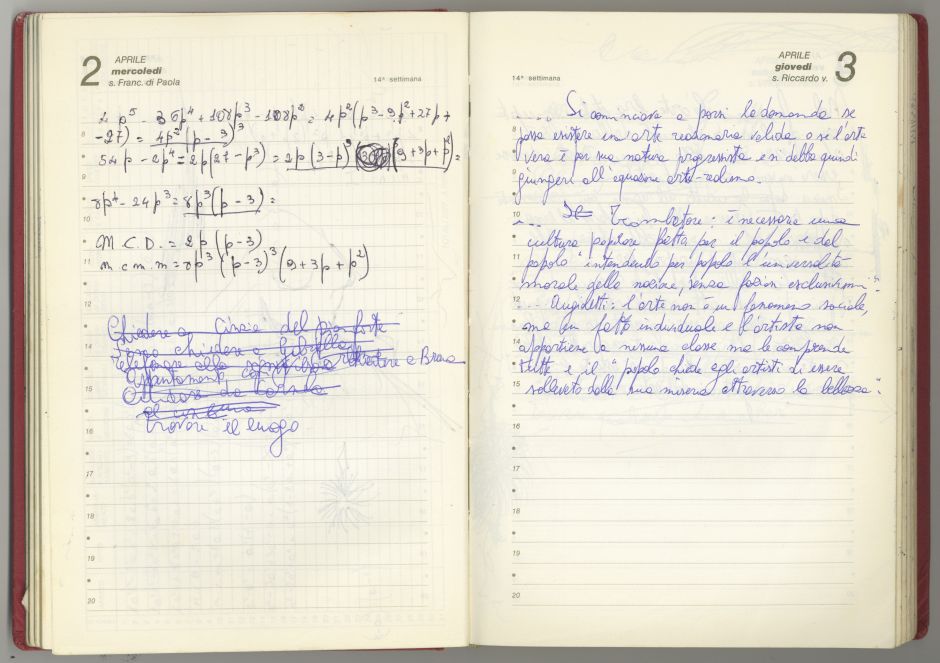 2 APRILE
mercoledì
s. Franc. di Paola
14ª settimana
4p⁵ - 36p⁴ + 108p³ - 108p² = 4p²(p³ - 9p² + 27p +
-27) = 4p²(p - 3)³
54p - 2p⁴ = 2p(27 - p³) = 2p(3 - p) (9 + 3p + p²) =
8p⁴ - 24p³ = 8p³(p - 3) =
M.C.D. = 2p(p - 3)
m c m. = 8p³(p - 3)³(9 + 3p + p²)
8
9
10
11
12
13
14
15
16
17
18
19
20
Chiedere a Cinzia del
Forse chiedere a
Telefonare alla
Appuntamento
Chiedere da
trovare il luogo
APRILE 3
giovedì
s. Riccardo v.
14ª settimana
... Si cominciava a porsi la domanda se
possa esistere un'arte reazionaria valida o se l'arte
vera è per sua natura progressista e si debba quindi
giungere all'equazione arte-realismo.
... Trombatore: è necessaria una
cultura popolare fatta per il popolo e dal
popolo "intendendo per popolo l'universalità
morale della nazione, senza faziosi esclusivismi".
... Angioletti: l'arte non è un fenomeno sociale,
ma un fatto individuale e l'artista non
appartiene a nessuna classe ma le comprende
tutte e il "popolo chiede agli artisti di essere
sollevato dalla sua miseria attraverso la bellezza".
8
9
10
11
12
13
14
15
16
17
18
19
20